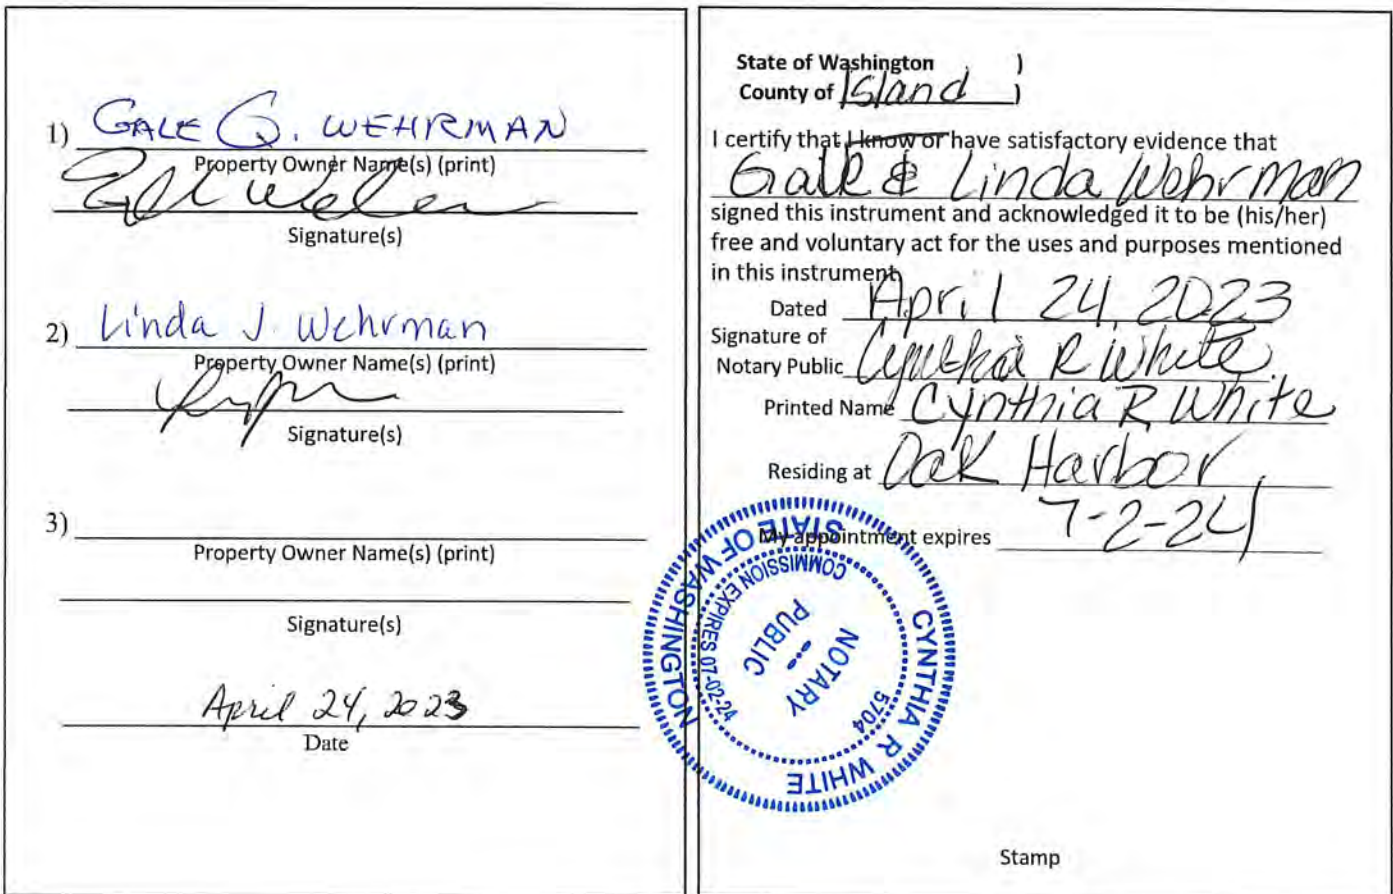 1) GALE G. WEHRMAN
Property Owner Name(s) (print)
Signature(s)
2) Linda J. Wehrman
Property Owner Name(s) (print)
Signature(s)
3)
Property Owner Name(s) (print)
Signature(s)
April 24, 2023
Date
State of Washington )
County of Island )
I certify that I know or have satisfactory evidence that
Gale & Linda Wehrman
signed this instrument and acknowledged it to be (his/her)
free and voluntary act for the uses and purposes mentioned
in this instrument
Dated April 24, 2023
Signature of
Notary Public Cynthia R White
Printed Name Cynthia R White
Residing at Oak Harbor
My appointment expires 7-2-24
CYNTHIA R WHITE
STATE OF WASHINGTON
COMMISSION EXPIRES 07-02-24
5704
NOTARY
PUBLIC
Stamp